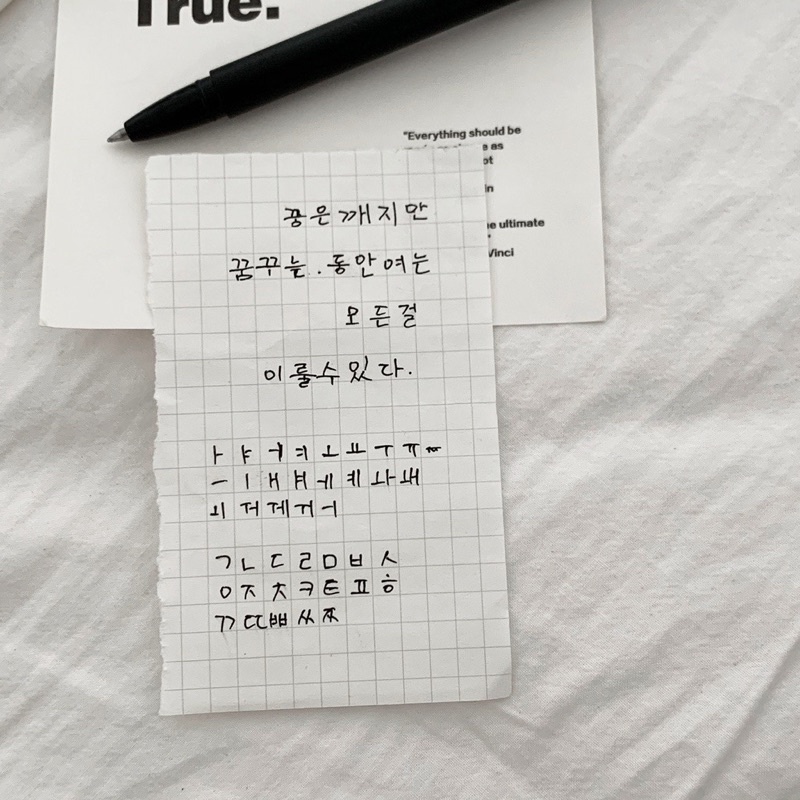 True.
"Everything should be
e as
ot
in
e ultimate
"
Vinci
꿍은 깨지만
꿈꾸는. 동안 여는
모든걸
이룰수있다.
ㅏ ㅑ ㅓ ㅕ ㅗ ㅛ ㅜ ㅠ
ㅡ ㅣ ㅐ ㅒ ㅔ ㅖ ㅘ ㅙ
ㅚ ㅝ ㅞ ㅟ ㅢ
ㄱ ㄴ ㄷ ㄹ ㅁ ㅂ ㅅ
ㅇ ㅈ ㅊ ㅋ ㅌ ㅍ ㅎ
ㄲ ㄸ ㅃ ㅆ ㅉ